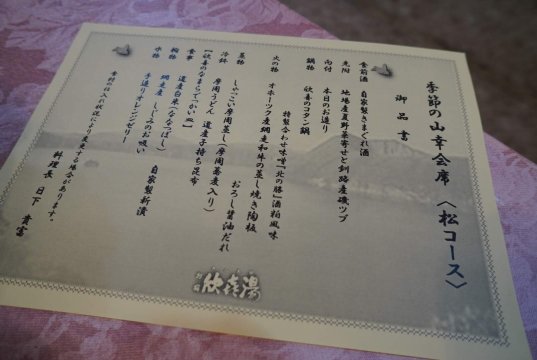 季節の山幸会席〈松コース〉
御品書
食前酒 自家製きまぐれ酒
先附 地場産夏野菜寄せと釧路産磯ツブ
向付 本日のお造り
鍋物 欣喜のコタン鍋
特製合わせ味噌「北の勝」酒粕風味
火の物 オホーツク産網走和牛の蒸し焼き陶板
おろし醤油だれ
蒸物 しゃっこい摩周蒸し(摩周蕎麦入り)
冷鉢 摩周うどん 道産子持ち昆布
【欣喜のなまらでっかい皿】
食事 道産白米(ななつぼし) 自家製新漬
椀物 網走産 しじみのお吸い
水物 手造りオレンジゼリー
食材の仕入れ状況により変更する場合があります。
料理長 日下 貴富
欣喜湯